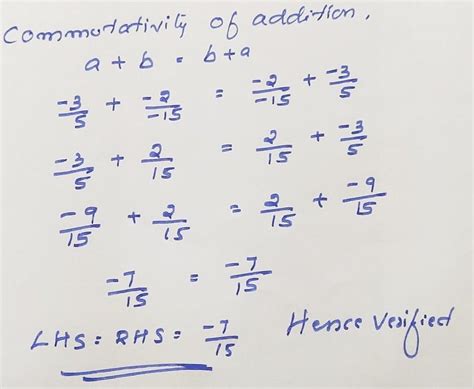 Commutativity of addition.
a + b = b+a
-3/5 + -2/-15 = -2/-15 + -3/5
-3/5 + 2/15 = 2/15 + -3/5
-9/15 + 2/15 = 2/15 + -9/15
-7/15 = -7/15
LHS = RHS = -7/15 Hence Verified